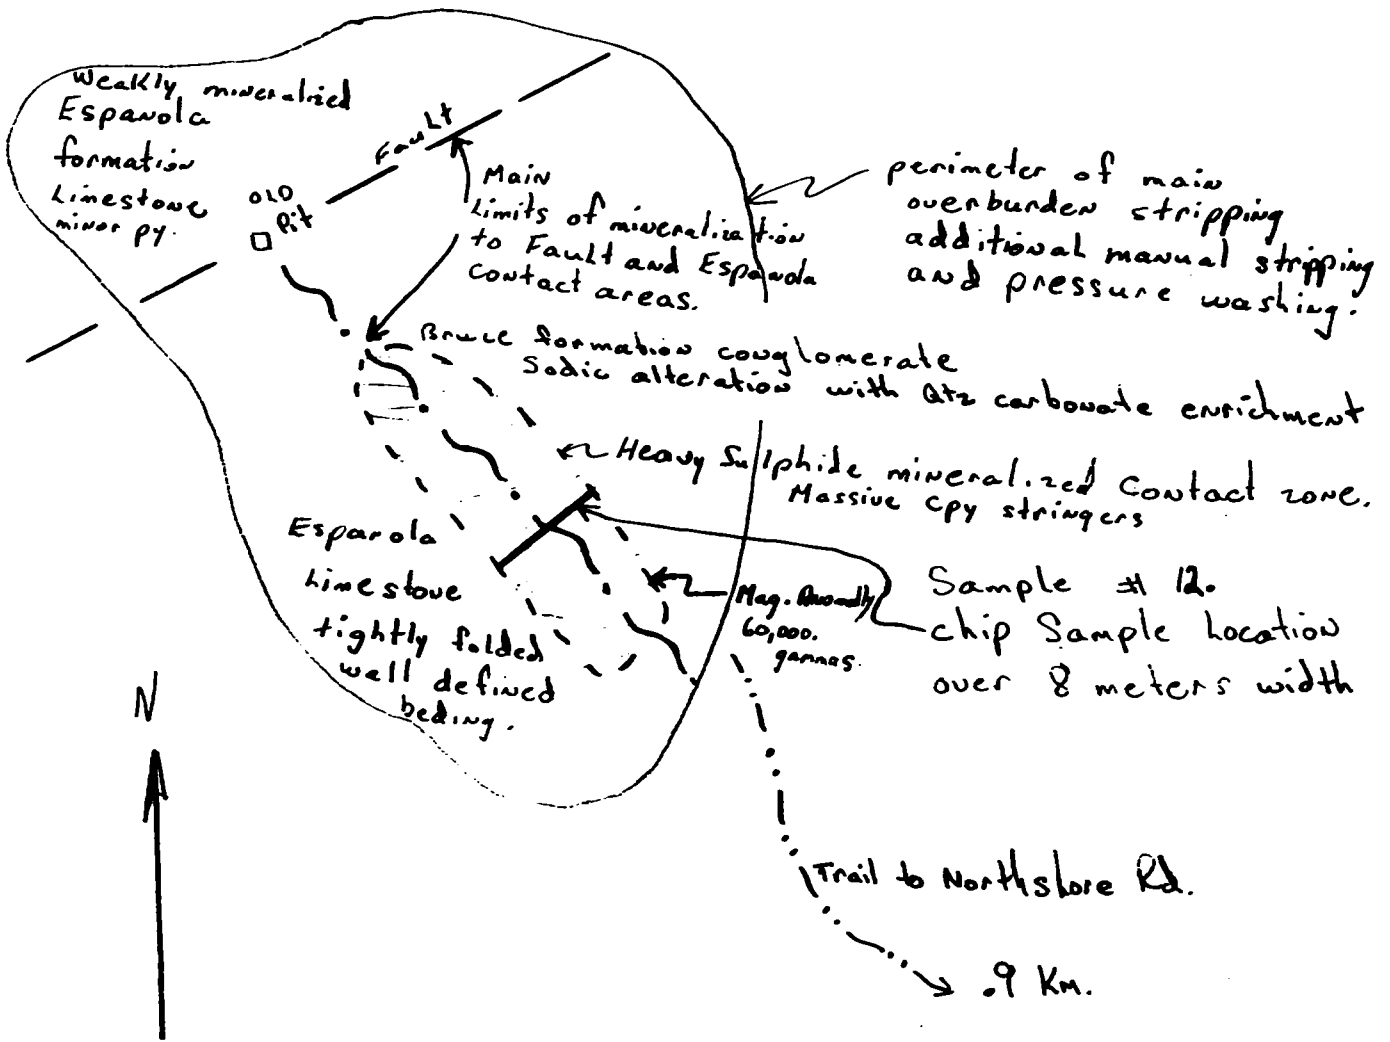 Weakly mineralized
Espanola
formation
Limestone
minor py.
OLD
Pit
Fault
Main
Limits of mineralization
to Fault and Espanola
contact areas.
perimeter of main
overburden stripping
additional manual stripping
and pressure washing.
Bruce formation conglomerate
Sodic alteration with Qtz carbonate enrichment
Heavy Sulphide mineralized Contact zone.
Massive Cpy stringers
Espanola
Limestone
tightly folded
well defined
beding.
Mag. Anomally
60,000.
gammas.
Sample # 12.
chip Sample Location
over 8 meters width
N
Trail to Northshore Rd.
.9 Km.